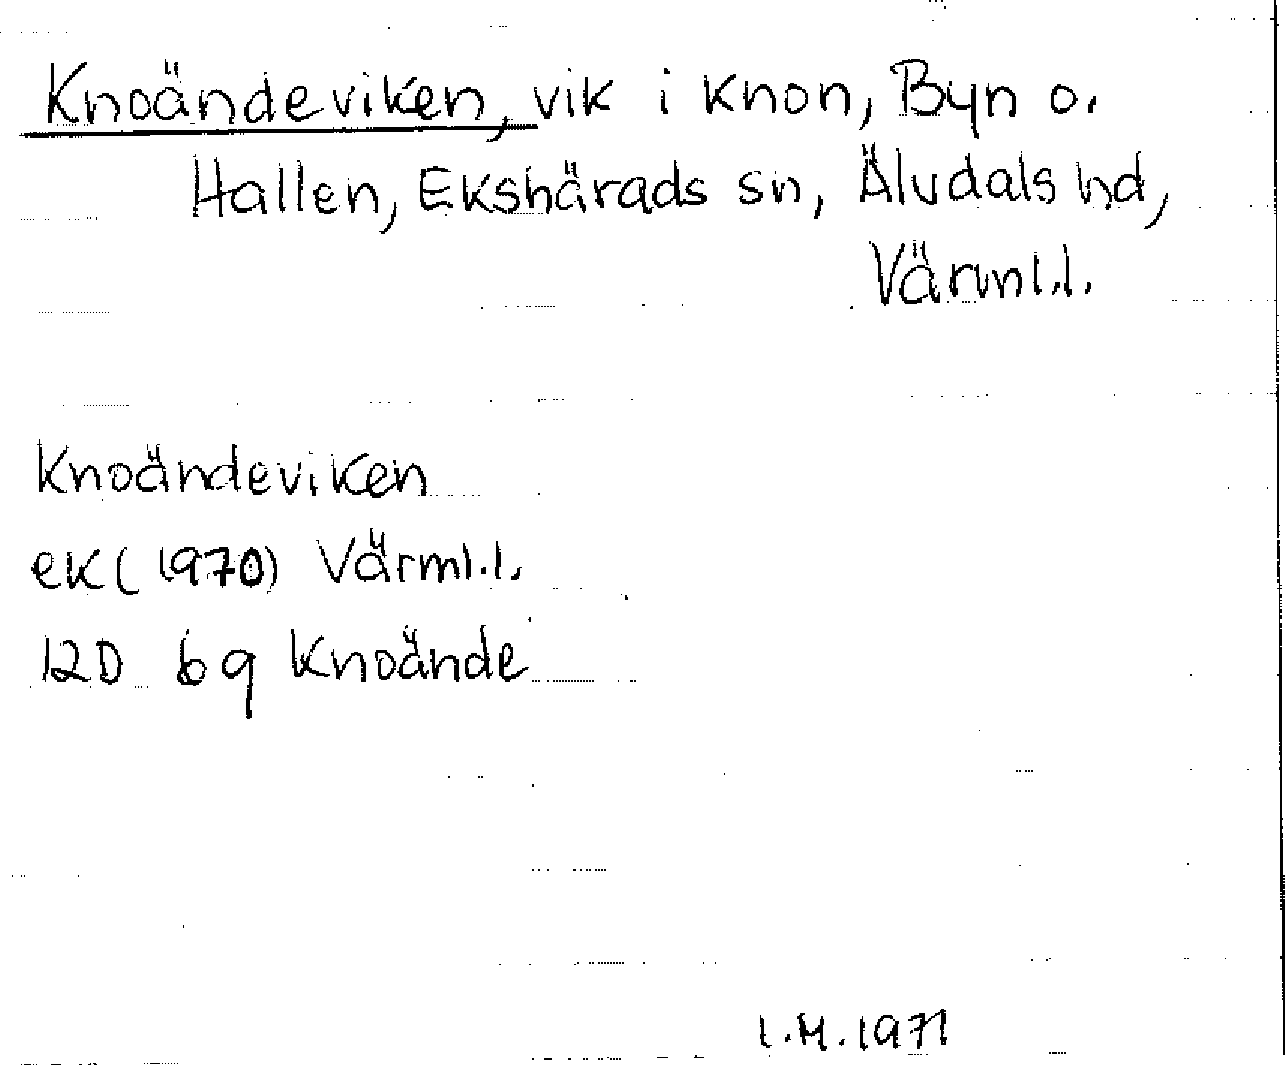 Knoändeviken, vik i Knon, Byn o.
Hallen, Ekshärads sn, Älvdals hd,
Värml.l.
Knoändeviken
ek (1970) Värml.l.
12D 6g Knoände
I.M. 1971